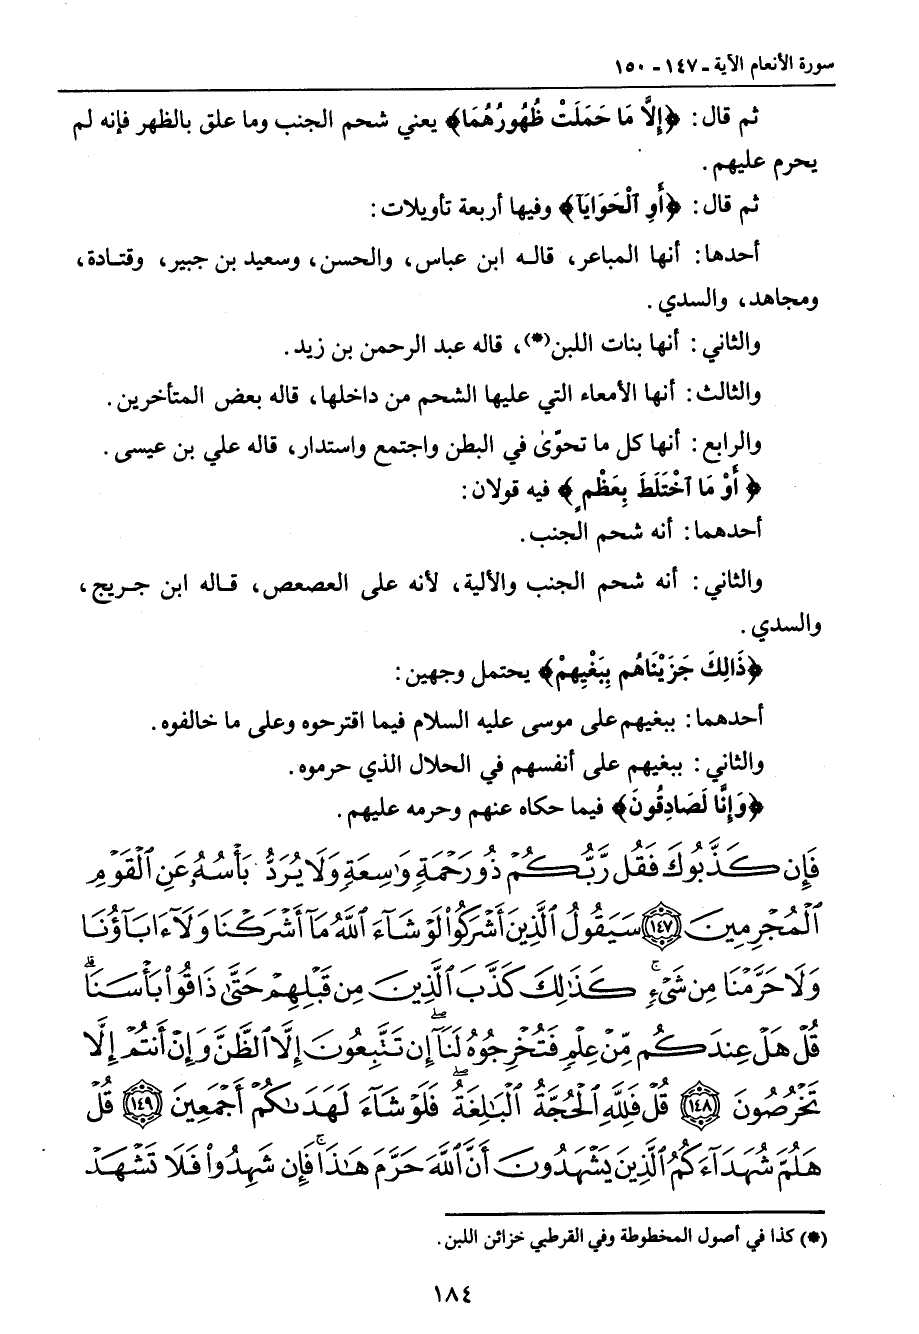 سورة الأنعام الآية - ١٤٧ - ١٥٠
ثم قال: ﴿إِلَّا مَا حَمَلَتْ ظُهُورُهُمَا﴾ يعني شحم الجنب وما علق بالظهر فإنه لم
يحرم عليهم.
ثم قال: ﴿أَوِ ٱلْحَوَايَآ﴾ وفيها أربعة تأويلات:
أحدها: أنها المباعر، قاله ابن عباس، والحسن، وسعيد بن جبير، وقتادة،
ومجاهد، والسدي.
والثاني: أنها بنات اللبن(*)، قاله عبد الرحمن بن زيد.
والثالث: أنها الأمعاء التي عليها الشحم من داخلها، قاله بعض المتأخرين.
والرابع: أنها كل ما تحوّىٰ في البطن واجتمع واستدار، قاله علي بن عيسى.
﴿أَوْ مَا ٱخْتَلَطَ بِعَظْمٍ﴾ فيه قولان:
أحدهما: أنه شحم الجنب.
والثاني: أنه شحم الجنب والألية، لأنه على العصعص، قاله ابن جريج،
والسدي.
﴿ذَالِكَ جَزَيْنَاهُم بِبَغْيِهِمْ﴾ يحتمل وجهين:
أحدهما: ببغيهم على موسى عليه السلام فيما اقترحوه وعلى ما خالفوه.
والثاني: ببغيهم على أنفسهم في الحلال الذي حرموه.
﴿وَإِنَّا لَصَادِقُونَ﴾ فيما حكاه عنهم وحرمه عليهم.
فَإِن كَذَّبُوكَ فَقُل رَّبُّكُمْ ذُو رَحْمَةٍ وَٰسِعَةٍ وَلَا يُرَدُّ بَأْسُهُۥ عَنِ ٱلْقَوْمِ
ٱلْمُجْرِمِينَ ١٤٧ سَيَقُولُ ٱلَّذِينَ أَشْرَكُوا۟ لَوْ شَآءَ ٱللَّهُ مَآ أَشْرَكْنَا وَلَآ ءَابَآؤُنَا
وَلَا حَرَّمْنَا مِن شَىْءٍ ۚ كَذَٰلِكَ كَذَّبَ ٱلَّذِينَ مِن قَبْلِهِمْ حَتَّىٰ ذَاقُوا۟ بَأْسَنَا ۗ
قُلْ هَلْ عِندَكُم مِّنْ عِلْمٍ فَتُخْرِجُوهُ لَنَآ ۖ إِن تَتَّبِعُونَ إِلَّا ٱلظَّنَّ وَإِنْ أَنتُمْ إِلَّا
تَخْرُصُونَ ١٤٨ قُلْ فَلِلَّهِ ٱلْحُجَّةُ ٱلْبَٰلِغَةُ ۖ فَلَوْ شَآءَ لَهَدَىٰكُمْ أَجْمَعِينَ ١٤٩ قُلْ
هَلُمَّ شُهَدَآءَكُمُ ٱلَّذِينَ يَشْهَدُونَ أَنَّ ٱللَّهَ حَرَّمَ هَٰذَا ۖ فَإِن شَهِدُوا۟ فَلَا تَشْهَدْ
(*) كذا في أصول المخطوطة وفي القرطبي خزائن اللبن.
١٨٤